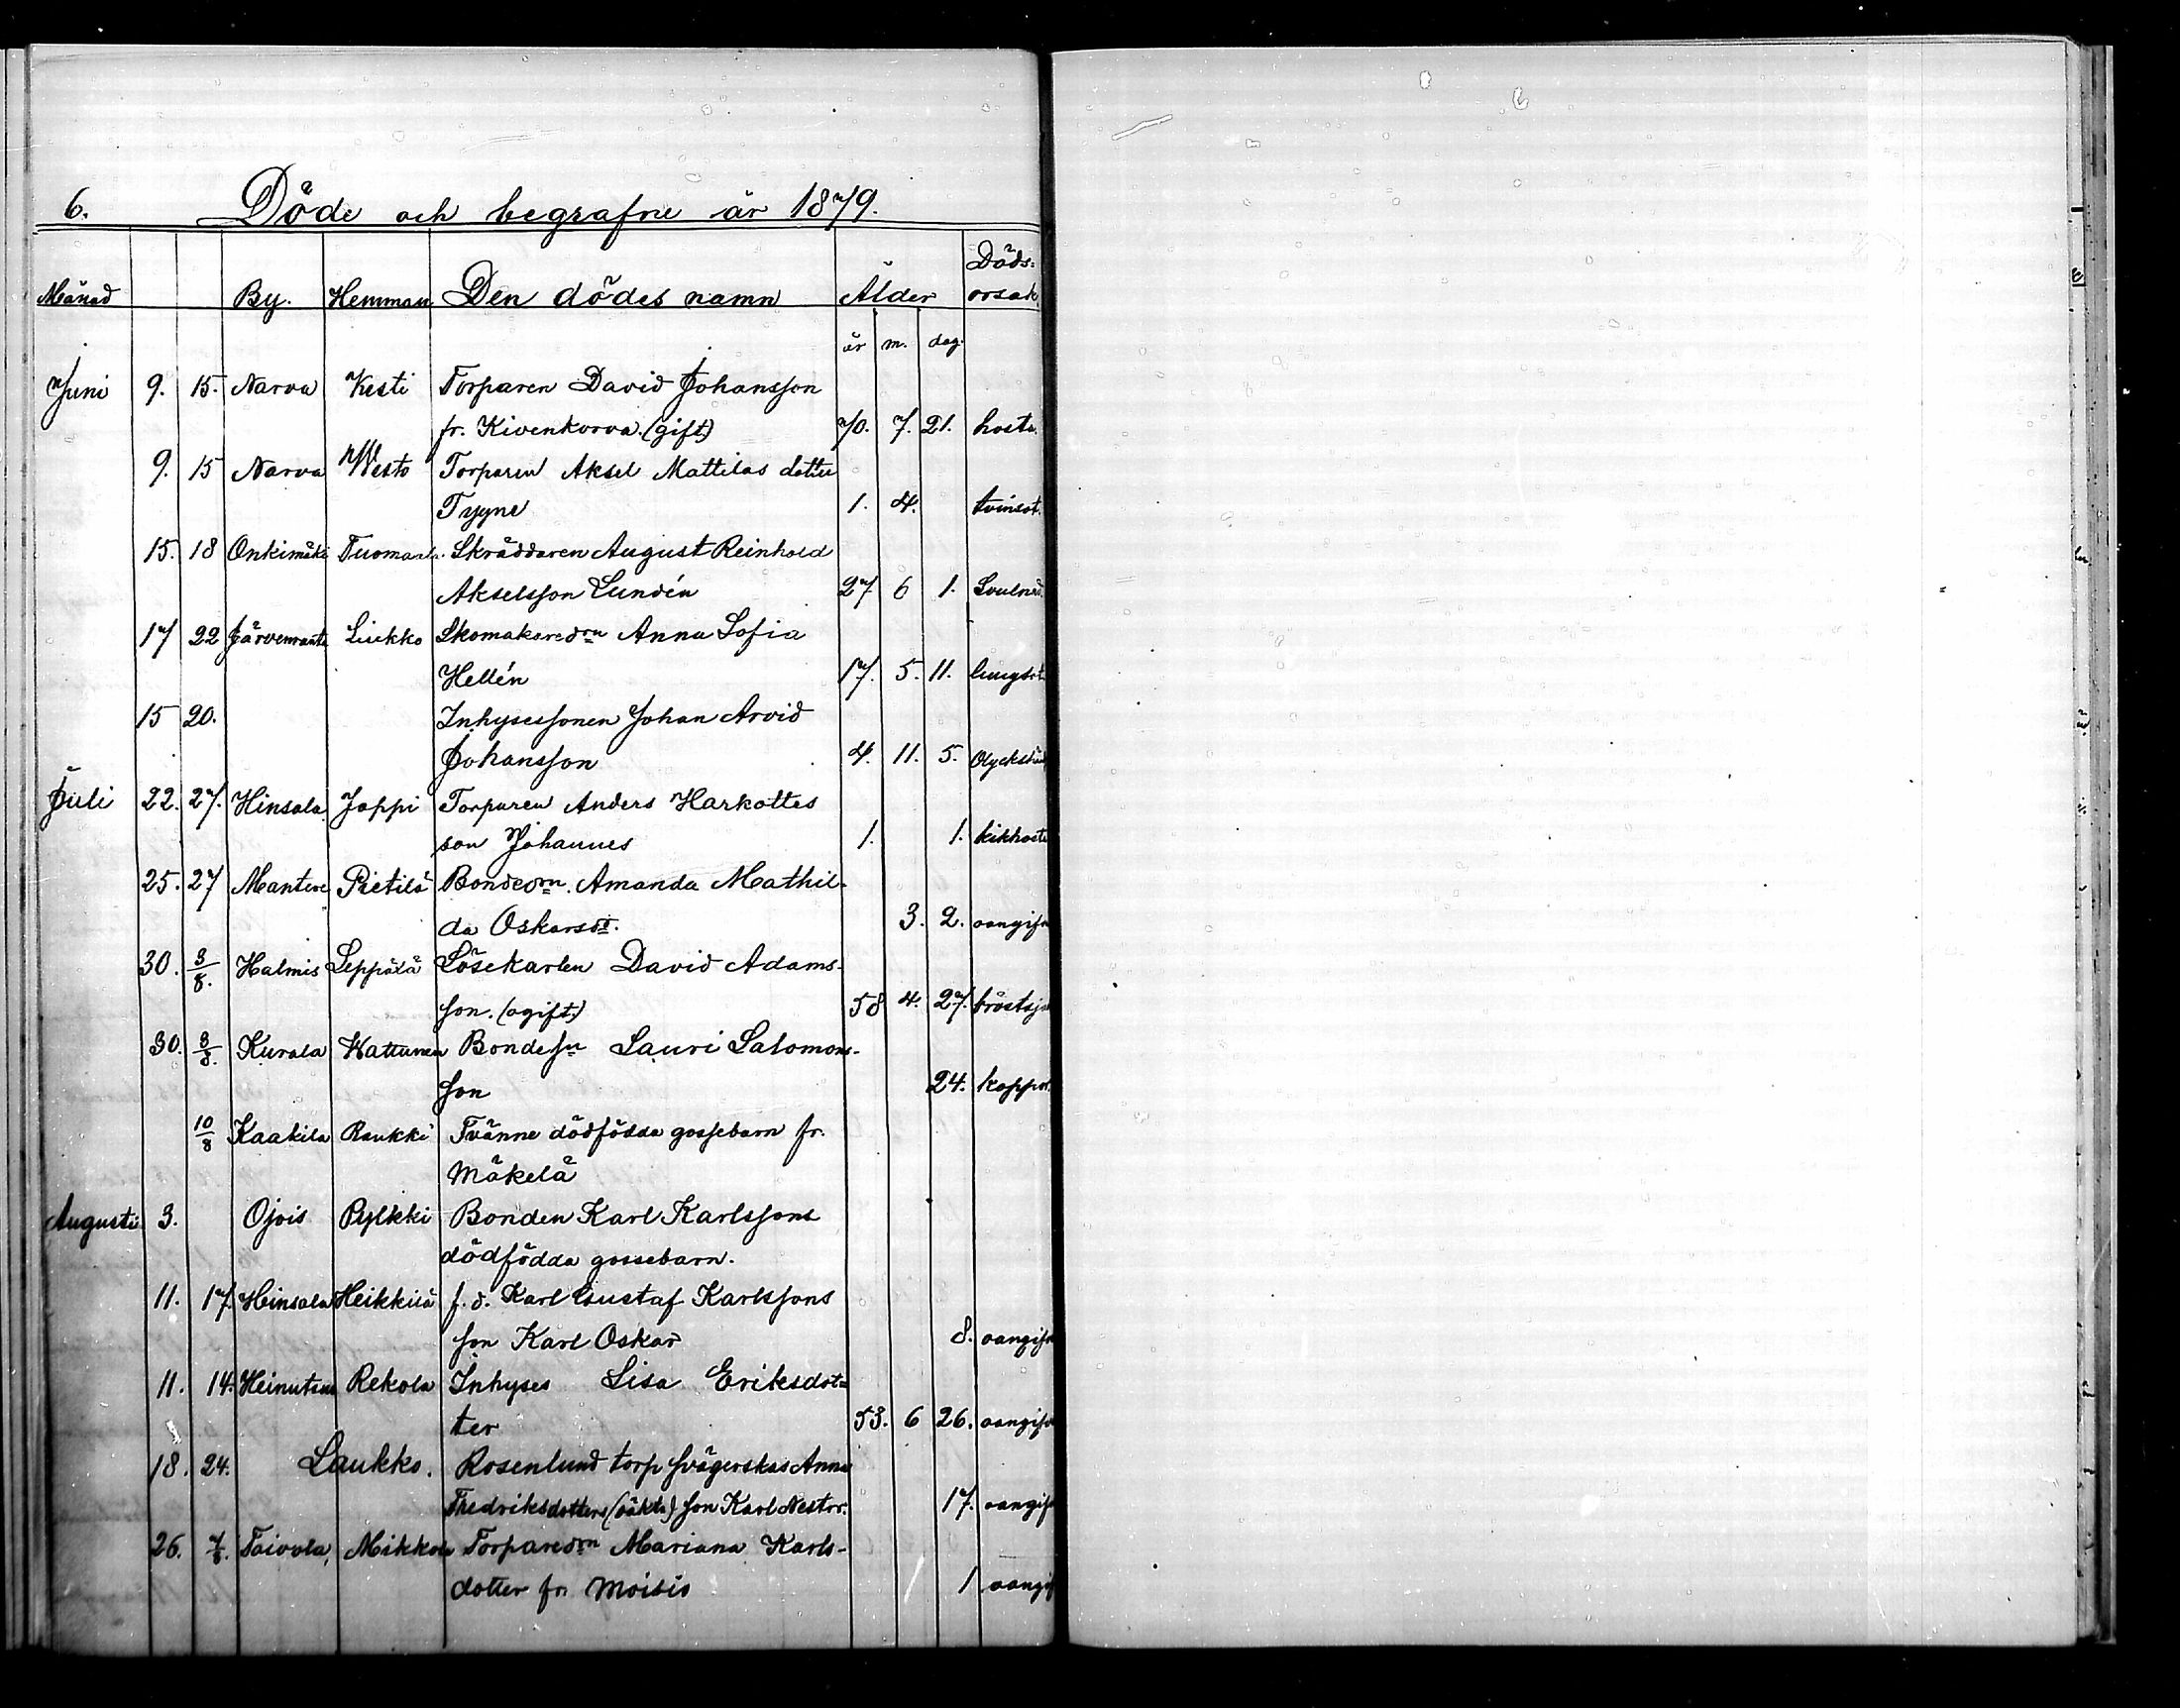 6. Döde och begrafne år 1879.
Månad By. Hemman Den dödes namn Ålder Döds-
orsak
år m. dag.
Juni 9. 15. Narva Kesti Torparen David Johansson
fr. Kivenkorva. (gift) 70. 7. 21. hosta.
9. 15 Narva Westo Torparen Aksel Mattilas dotter
Tyyne 1. 4. tvinsot.
15. 18 Onkimäki Tuomaala. Skräddaren August Reinhold
Akselsson Lundén 27 6 1. Svulnad.
17 22 Järvenranta Liukko Skomakaredrn Anna Sofia
Hellén 17. 5. 11. lungsot
15 20. Inhysessonen Johan Arvid
Johansson 4. 11. 5. Olyckshänd
Juli 22. 27. Hinsala Joppi Torparen Anders Harkottes
son Johannes 1. 1. kikhosta
25. 27 Mantere Pietilä Bondedrn. Amanda Mathil-
da Oskarsdr. 3. 2. oangifn
30. 3/8. Halmis Leppälä Lösekarlen David Adams-
son. (ogift) 58 4. 27. bröstsj
30. 3/8. Kurala Hattunen Bondesn Lauri Salomons-
son 24. koppor.
10/8 Kaakila Raukki Tvänne dödfödda gossebarn fr.
Mäkelä
Augusti 3. Ojois Pylkki Bonden Karl Karlssons
dödfödda gossebarn.
11. 17. Heinsala Heikkilä f.d. Karl Gustaf Karlssons
son Karl Oskar 8. oangifn
11. 14. Heinutsuo Rekola Inhyses Lisa Eriksdot-
ter 53. 6 26. oangifn
18. 24. Laukko. Rosenlund torp svägerskas Anna
Fredriksdotters (oäkta) son Karl Nestor. 17. oangif
26. Taivola, Mikkola Torparedrn Mariana Karls-
dotter fr. Moisio 1 oangif